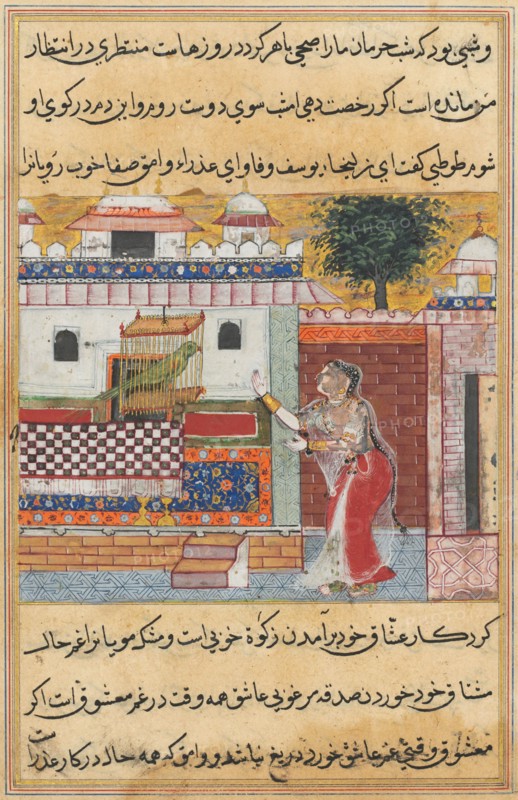 و شبی بود که شب حرمان مارا صبحی باهر کردد روزهاست منتظری در انتظار
من مانده است اکر رخصت دهی امشب سوی دوست روم و این دم در کوی او
شوم طوطی کفت ای زلیخا یوسف وفا و ای عذراء وامق صفا خوب رویانرا
کردن کار عشاق خود برآمدن زکوة خوبی است و مشک مویانرا غم حال
مشتاق خود خوردن صدقه مرغوبی عاشق همه وقت در غم معشوق است اکر
معشوق وقتی غم عاشق خورد دریغ نباشد و وامق که همه حال در کار عذراست